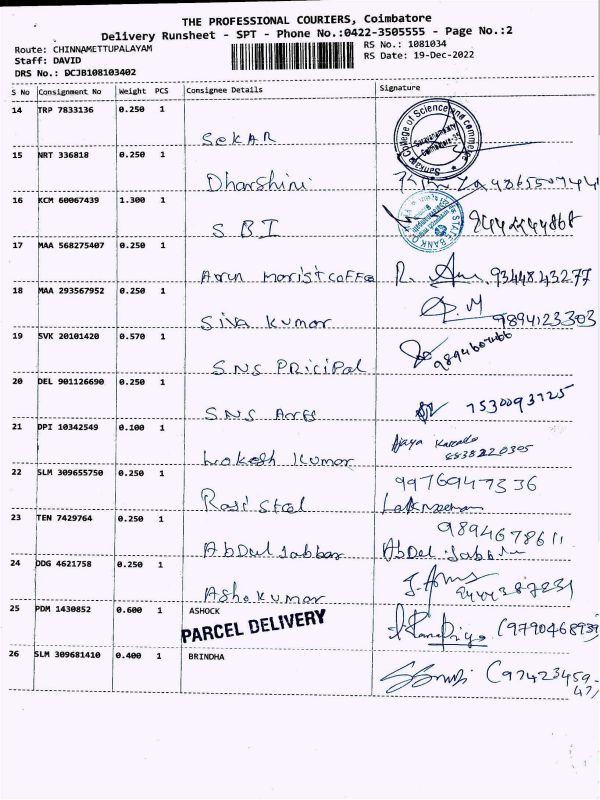 THE PROFESSIONAL COURIERS, Coimbatore
Delivery Runsheet - SPT - Phone No.:0422-3505555 - Page No.:2
Route: CHINNAMETTUPALAYAM RS No.: 1081034
Staff: DAVID RS Date: 19-Dec-2022
DRS No.: DCJB108103402
S No Consignment No Weight PCS Consignee Details Signature
14 TRP 7833136 0.250 1
Sekar
Sankara College of Science and Commerce
15 NRT 336818 0.250 1
Dharshini
16 KCM 60067439 1.300 1
SBI
STATE BANK O
17 MAA 568275407 0.250 1
Arun 9344843277
18 MAA 293567952 0.250 1
Siva Kumar 9894123303
19 SVK 20101420 0.570 1
SNS PRicipal
20 DEL 901126690 0.250 1
SNS 7530093725
21 DPI 10342549 0.100 1
Lokesh Kumar 8838220305
22 SLM 309655750 0.250 1
9976947336
23 TEN 7429764 0.250 1
9894678611
AbDul Jabbar
24 DDG 4621758 0.250 1
Ashokumar
25 PDM 1430852 0.600 1 ASHOCK
PARCEL DELIVERY (9790468939
26 SLM 309681410 0.400 1 BRINDHA
(97423459-
47)